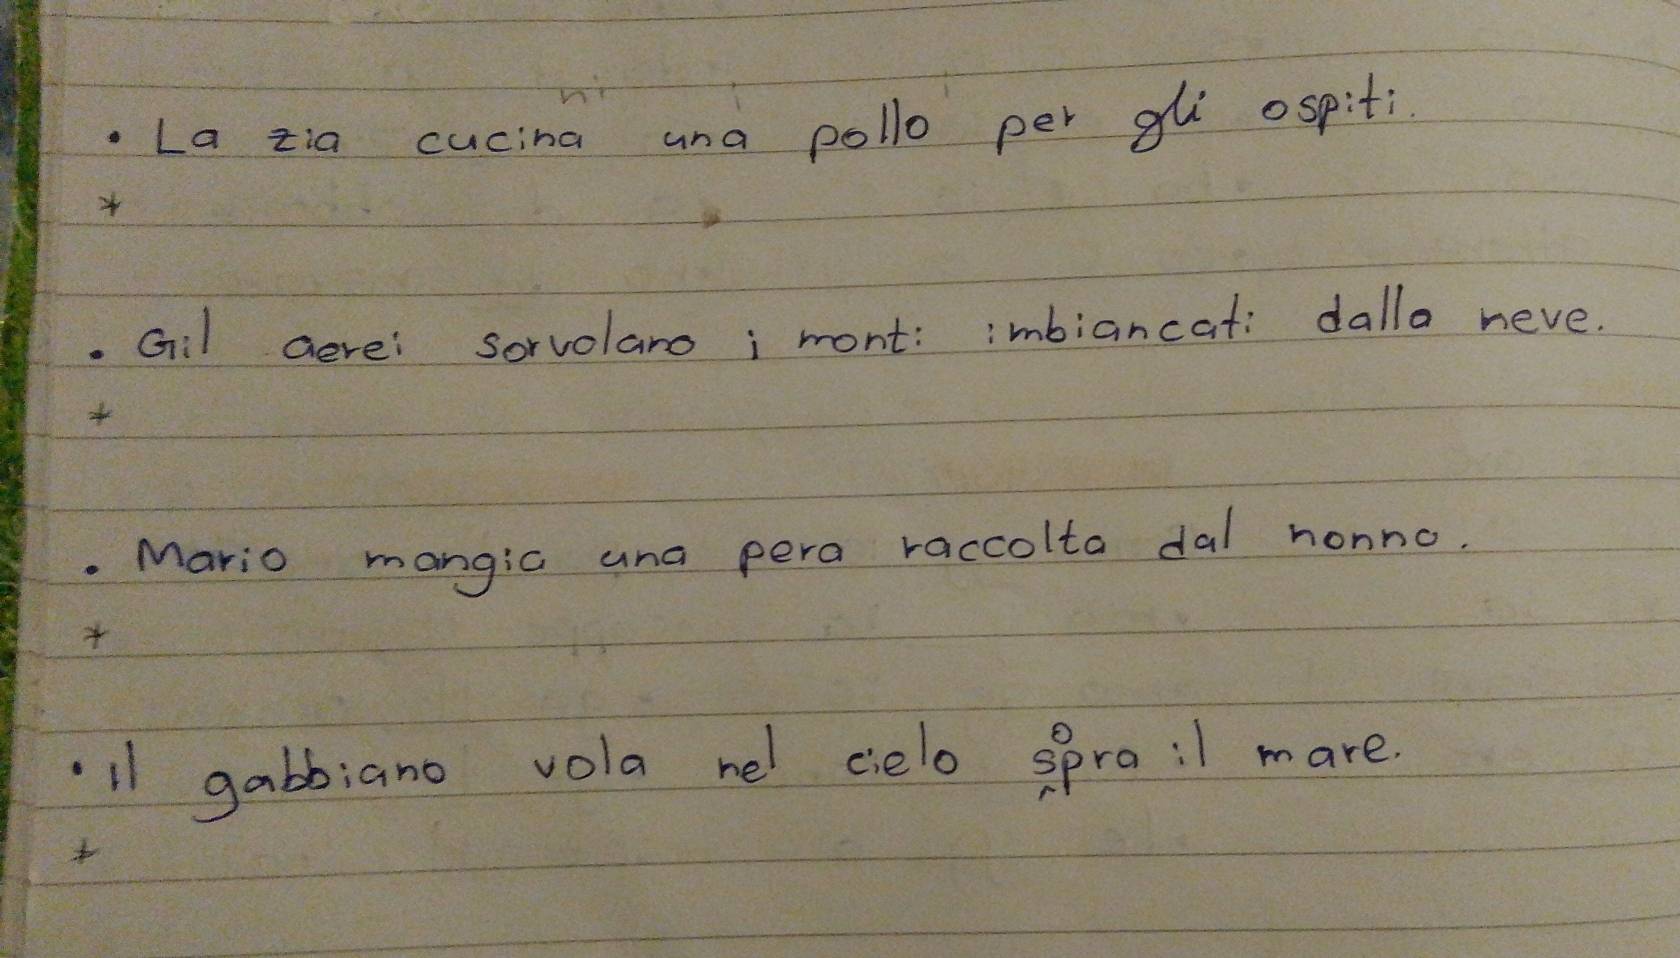 • La zia cucina una pollo per gli ospiti.
*
• Gil aerei sorvolano i monti imbiancati dalla neve.
*
• Mario mangia una pera raccolta dal nonno.
*
• il gabbiano vola nel cielo sopra il mare.
*